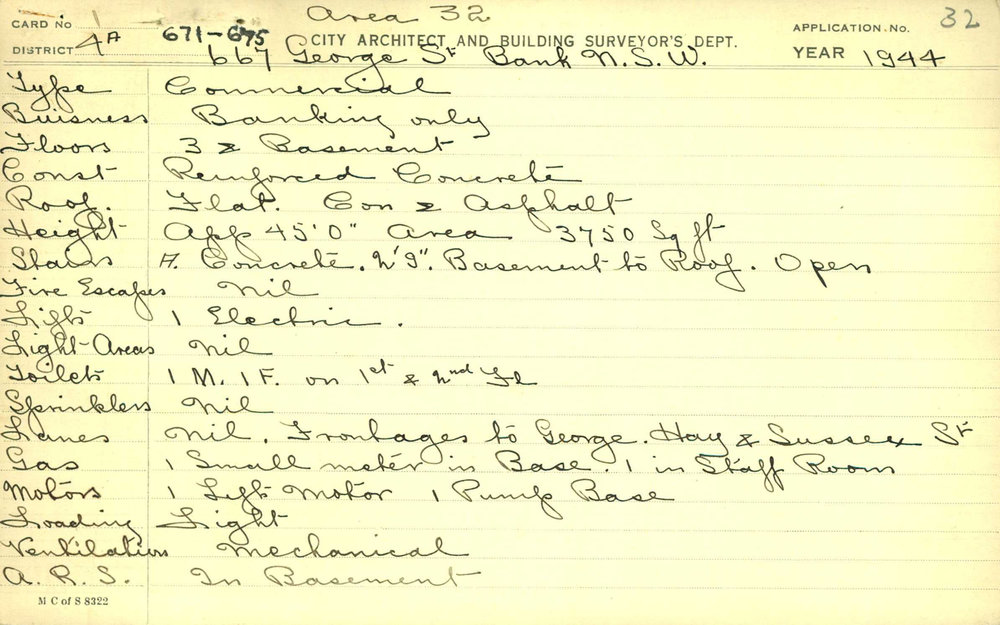 Area 32
32
CARD No
671-675
CITY ARCHITECT AND BUILDING SURVEYOR'S DEPT.
APPLICATION. No.
DISTRICT 4A
667 George St Bank N.S.W.
YEAR 1944
Type Commercial
Buisness Banking only
Floors 3 & Basement
Const Reinforced Concrete
Roof. Flat. Con & Asphalt
Height App 45'0" Area 3750 Sq ft
Stairs Concrete. Basement to Roof. Open
Fire Escapes Nil
Lifts 1 Electric.
Light Areas Nil
Toilets 1 M. 1 F. on 1st & 2nd Fl
Sprinklers Nil
Lanes Nil. Frontages to George. Hay & Sussex St
Gas 1 Small meter in Base. 1 in Staff Room
Motors 1 Lift Motor 1 Pump Base
Loading Light
Ventilation Mechanical
A.R.S. In Basement
M C of S 8322